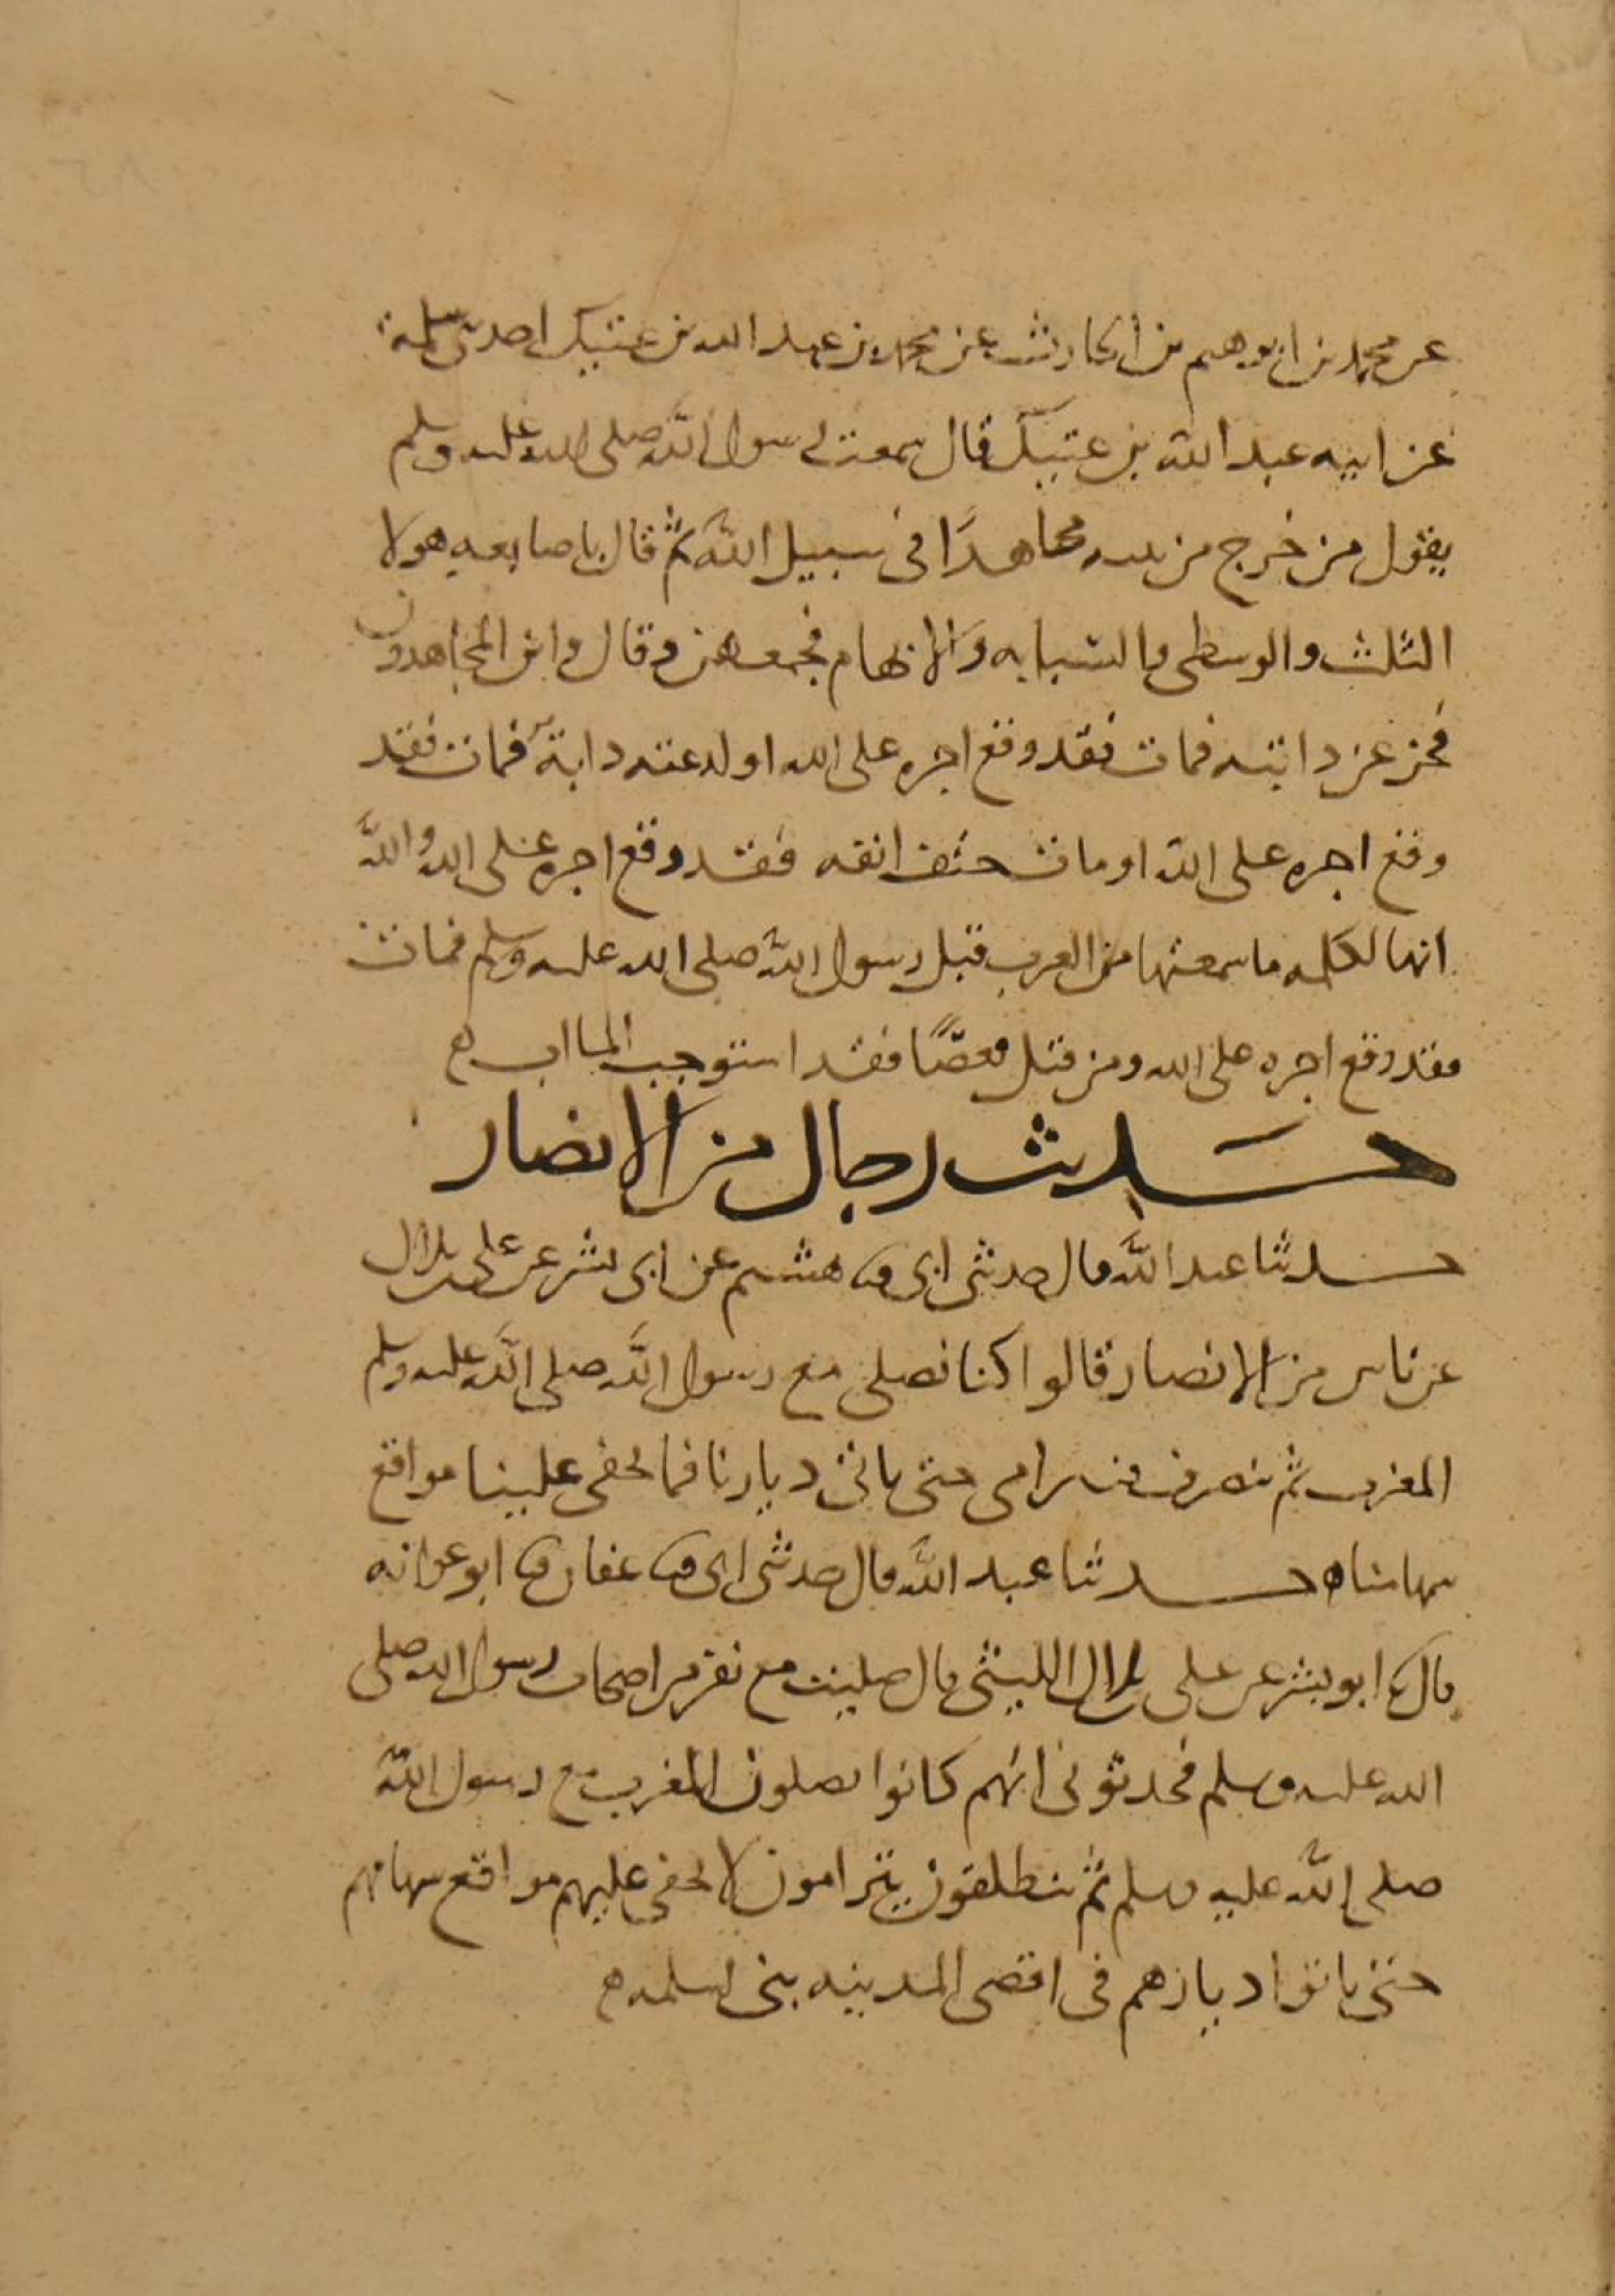 عن محمد بن ابرهيم بن الحارث عن محمد بن عبد الله بن عتيك احد بنى سلمة
عن ابيه عبد الله بن عتيك قال سمعت رسول الله صلى الله عليه وسلم
يقول من خرج من بيته مجاهدًا فى سبيل الله ثم قال باصابعه هولا
الثلث والوسطى والسبابه والابهام فجمعهن وقال واين المجاهدون
فخر عن دابته فمات فقد وقع اجره على الله او لدغته دابة فمات فقد
وقع اجره على الله او مات حتف انفه فقد وقع اجره على الله والله
انها لكلمه ما سمعتها من العرب قبل رسول الله صلى الله عليه وسلم فمات
فقد وقع اجره على الله ومن قتل قعصًا فقد استوجب الماب
حديث رجال من الانصار
حدثنا عبد الله قال حدثنى ابى ثنا هشيم عن ابى بشر عن على بن بلال
عن ناس من الانصار قالوا كنا نصلى مع رسول الله صلى الله عليه وسلم
المغرب ثم ننصرف فنترامى حتى ناتى ديارنا فما يخفى علينا مواقع
سهامنا ه حدثنا عبد الله قال حدثنى ابى ثنا عفان ثنا ابو عوانه
قال ثنا ابو بشر عن على بن بلال الليثى قال صليت مع نفر من اصحاب رسول الله صلى
الله عليه وسلم فحدثونى انهم كانوا يصلون المغرب مع رسول الله
صلى الله عليه وسلم ثم ينطلقون يترامون لا يخفى عليهم مواقع سهامهم
حتى ياتوا ديارهم فى اقصى المدينه بنى سلمه